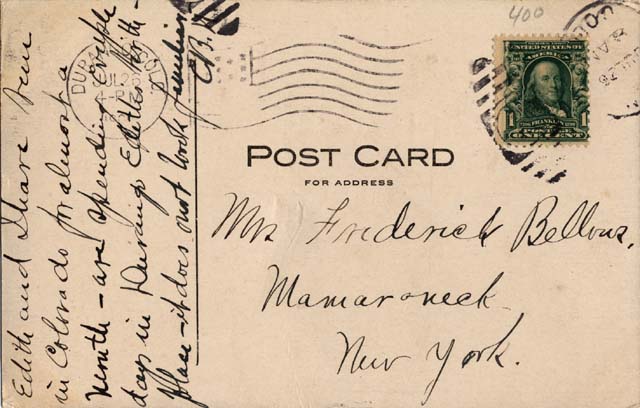 400
DURANGO
UNITED STATES OF AMERICA
1 FRANKLIN 1
POSTAGE
ONE CENT
POST CARD
FOR ADDRESS
Mrs Frederick Bellows,
Mamaroneck
New York.
Edith and I have been
in Colorado for almost a
month - are spending couple
days in Durango Edith's birth-
place - it does not look familiar